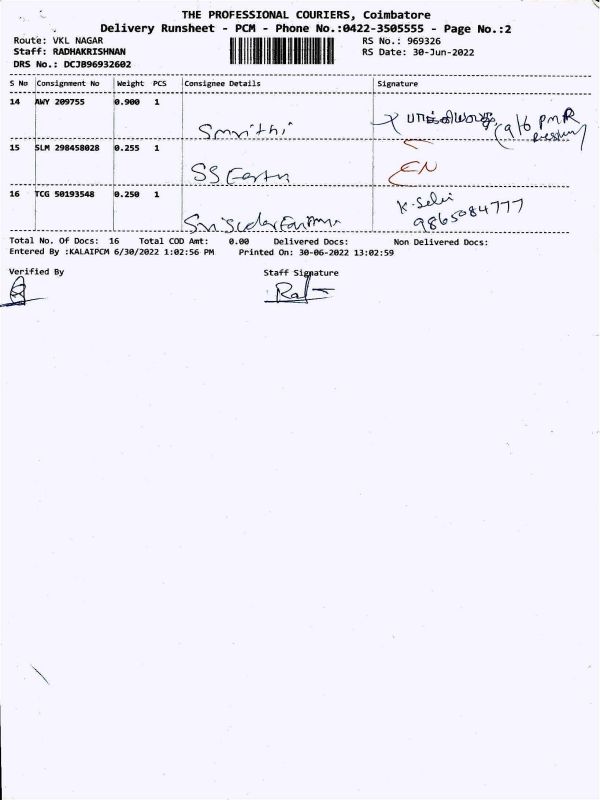 THE PROFESSIONAL COURIERS, Coimbatore
Delivery Runsheet - PCM - Phone No.:0422-3505555 - Page No.:2
Route: VKL NAGAR
RS No.: 969326
Staff: RADHAKRISHNAN
RS Date: 30-Jun-2022
DRS No.: DCJB96932602
S No Consignment No Weight PCS Consignee Details Signature
14 AWY 209755 0.900 1
Smrithi
15 SLM 298458028 0.255 1
SS Earth EN
16 TCG 50193548 0.250 1
K. Selvi
9865084777
Total No. Of Docs: 16 Total COD Amt: 0.00 Delivered Docs: Non Delivered Docs:
Entered By :KALAIPCM 6/30/2022 1:02:56 PM Printed On: 30-06-2022 13:02:59
Verified By Staff Signature